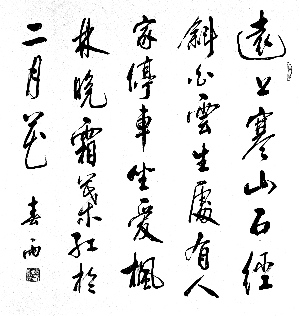 遠上寒山石經
斜白雲生處有人
家停車坐愛楓
林晚霜葉紅於
二月花
春雨